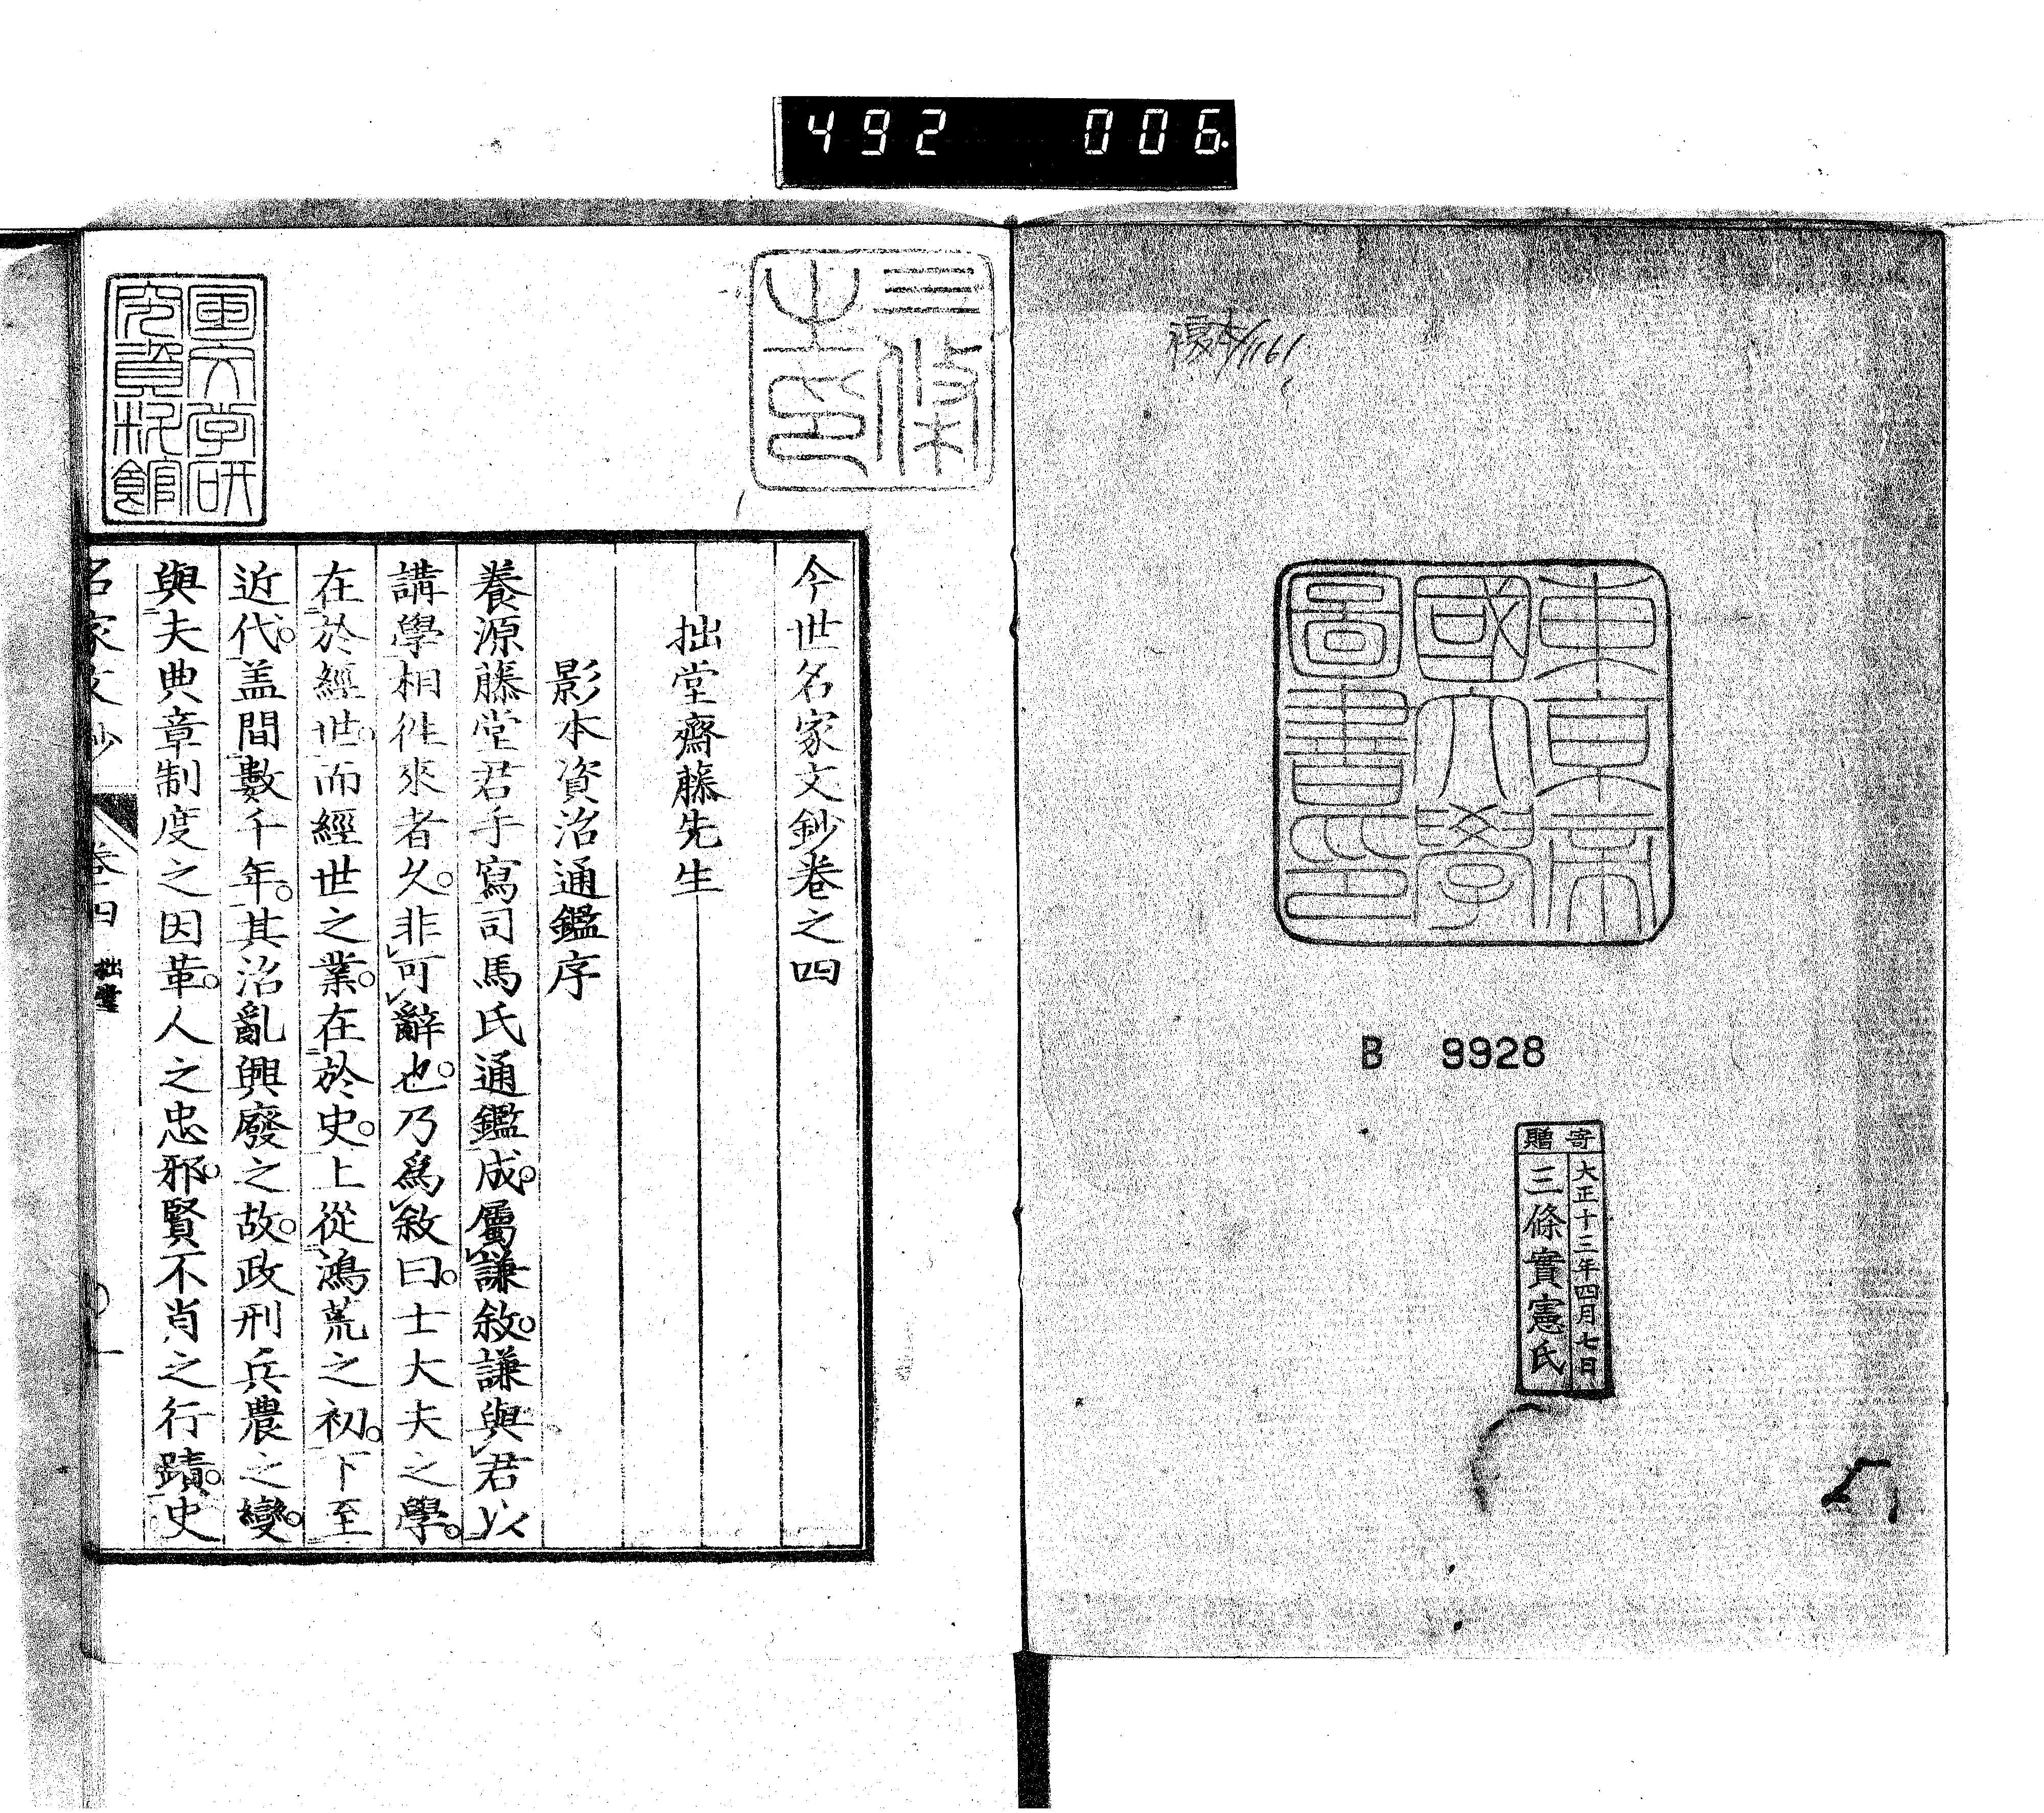 492 006
複本 1161
東京帝
國大學
圖書印
B 9928
寄贈
大正十三年四月七日
三條實憲氏
三條
之印
国文学研
究資料館
今世名家文鈔卷之四
拙堂齋藤先生
影本資治通鑑序
養源藤堂君手寫司馬氏通鑑成。屬謙敘。謙與君以
講學相徃來者久。非可辭也。乃爲敘曰。士大夫之學。
在於經世。而經世之業。在於史。上從鴻荒之初。下至
近代。盖間數千年。其治亂興廢之故。政刑兵農之變。
與夫典章制度之因革。人之忠邪。賢不肖之行蹟。史
名家文鈔 卷四 拙堂 一